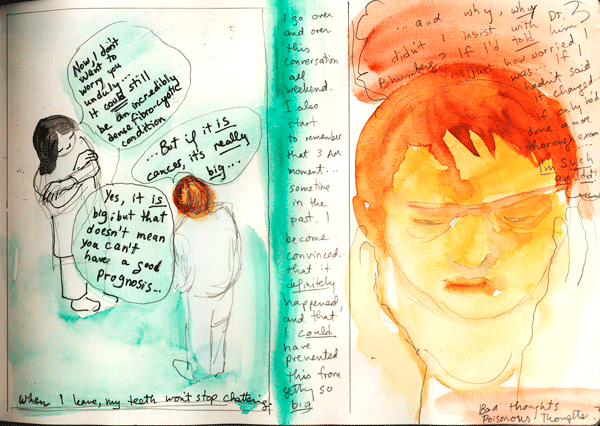 Now, I don't
want to
worry you
unduly...
It could still
be an incredibly
dense fibrocystic
condition
...But if it is
cancer, it's really
big...
Yes, it is
big; but that
doesn't mean
you can't
have a good
prognosis...
When I leave, my teeth won't stop chattering.
I go over
and over
this
conversation
all
weekend.
I also
start
to remember
that 3 AM
moment...
sometime
in the
past. I
become
convinced
that it
definitely
happened,
and that
I could
have
prevented
this from
getting so
big
3
...and why, why
didn't I insist with Dr.
if I'd told him
just how worried I
was. If I
hadn't said
it changed.
If only he'd
done a more
thorough exam...
I'm such
an idiot!
Bad thoughts
Poisonous Thoughts.